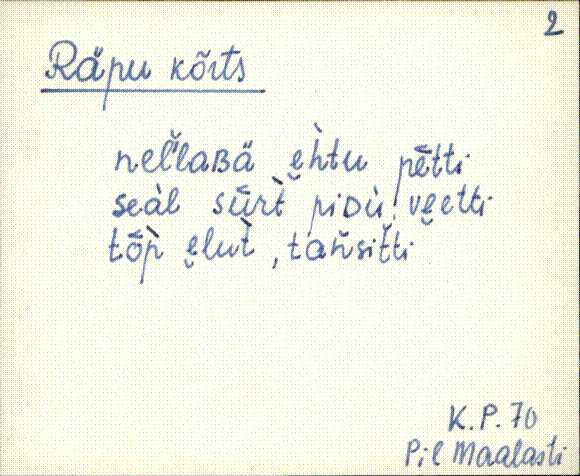 2
Räpu kõrts
nel̆laʙä e̮h̀tu pētti
seàl sǖrt̀ piᴅù, ve̮etti
tȭp̀ e̮lut̀, tan̆sit̆ti
K.P. 70
Pil Maalasti